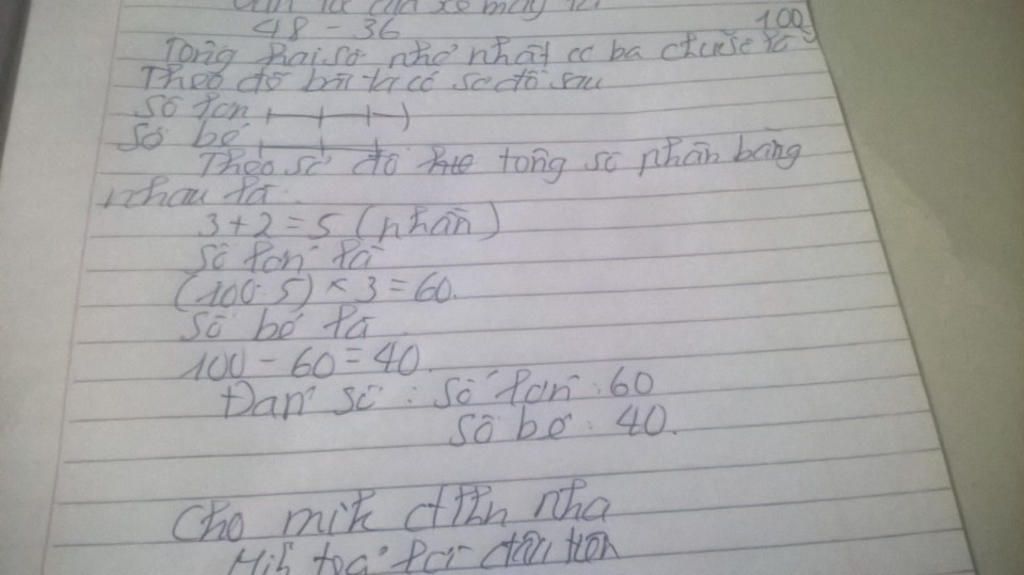 48 - 36
Tổng hai số nhỏ nhất có ba chữ số là 100
Theo đồ bài ta có sơ đồ sau
Số lớn
Số bé
Theo sơ đồ tổng số phần bằng
nhau là:
3 + 2 = 5 (phần)
Số lớn là
(100:5) × 3 = 60.
Số bé là
100 - 60 = 40.
Đáp số: Số lớn: 60
Số bé: 40.
Cho mik nha